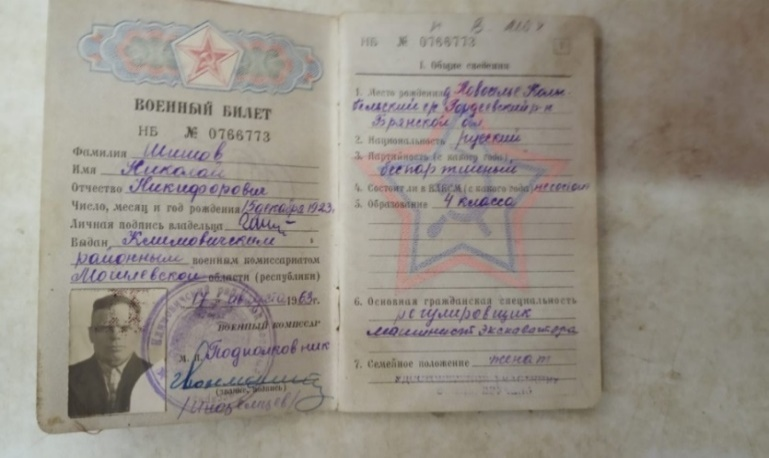 ВОЕННЫЙ БИЛЕТ
НБ № 0766773
Фамилия Шишов
Имя Николай
Отчество Никифорович
Число, месяц и год рождения 15 декабря 1923
Личная подпись владельца
Выдан Климовичским
районным военным комиссариатом
Могилевской области (республики)
17 августа 1963 г.
ВОЕННЫЙ КОМИССАР
М. П. Подполковник
(звание, подпись)
НБ № 0766773
I. Общие сведения
1. Место рождения
Гордеевский р-н
Брянской обл
2. Национальность русский
3. Партийность (с какого года)
беспартийный
4. Состоит ли в ВЛКСМ (с какого года) не состоит
5. Образование 4 класса
6. Основная гражданская специальность
регулировщик
машинист экскаватора
7. Семейное положение женат